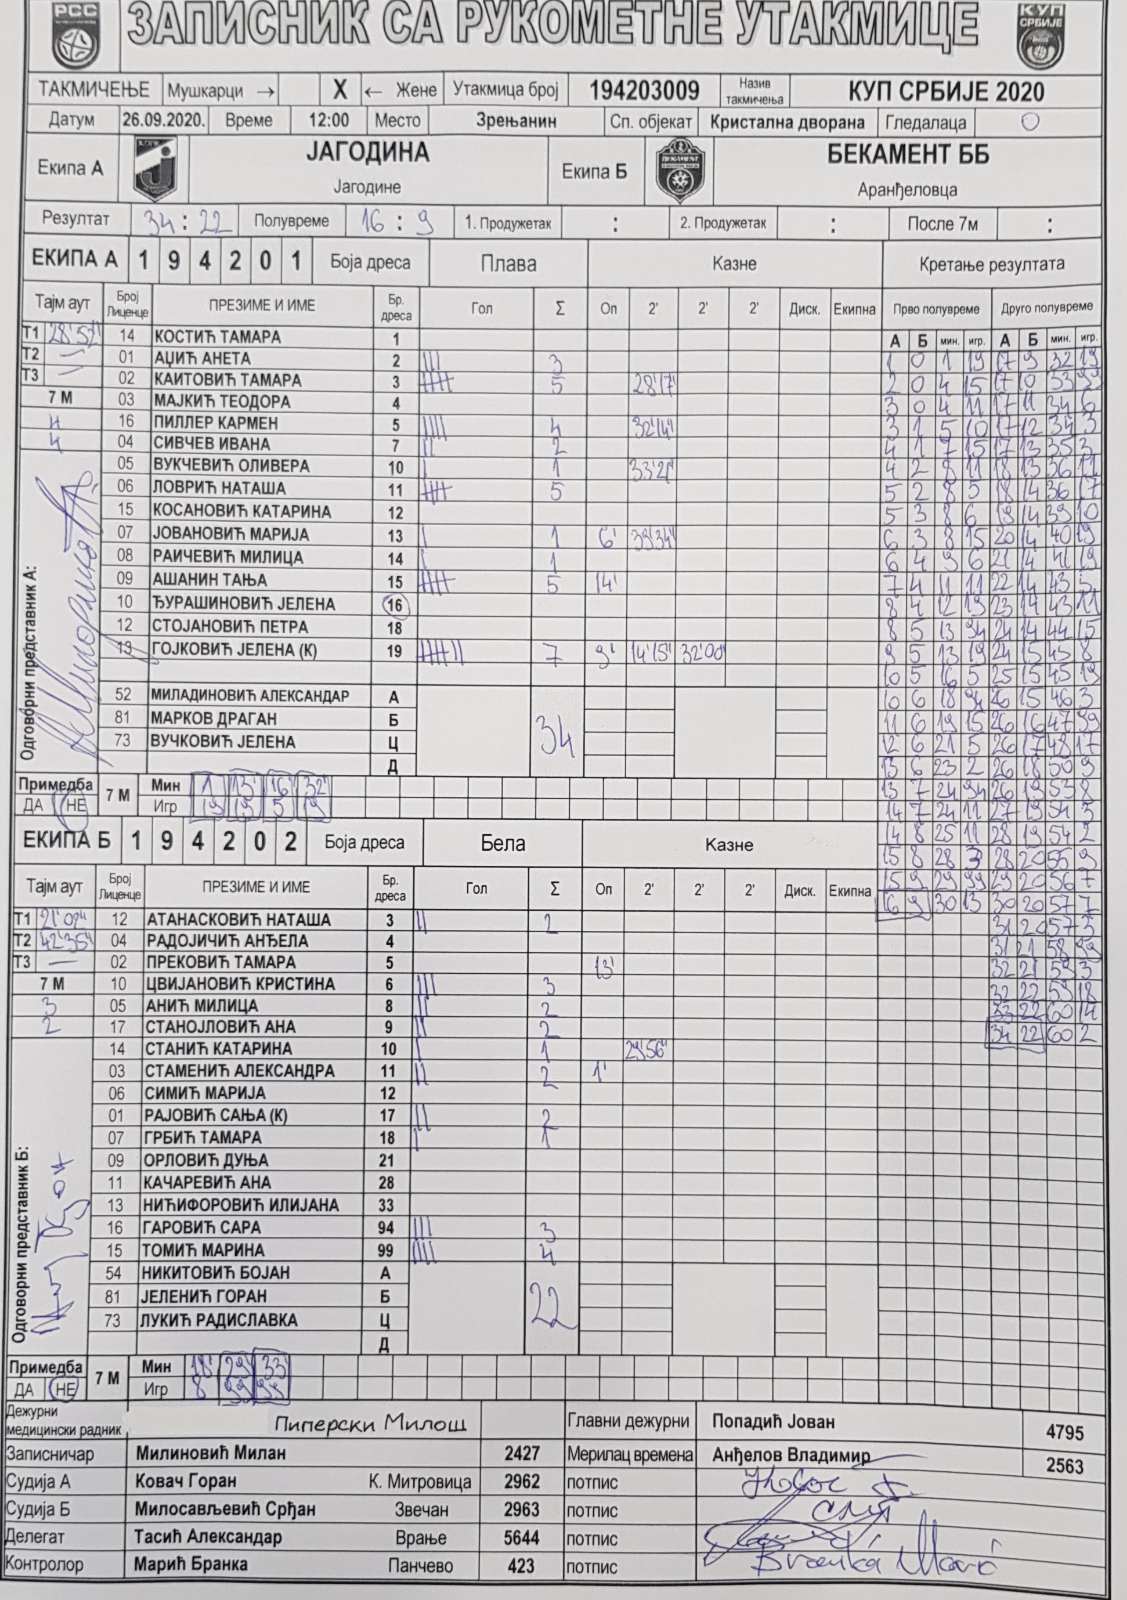 РСС
ЗАПИСНИК СА РУКОМЕТНЕ УТАКМИЦЕ
КУП СРБИЈЕ
ТАКМИЧЕЊЕ Мушкарци → X ← Жене Утакмица број 194203009 Назив такмичења КУП СРБИЈЕ 2020
Датум 26.09.2020. Време 12:00 Место Зрењанин Сп. објекат Кристална дворана Гледалаца 0
Екипа А ЈАГОДИНА Јагодине Екипа Б БЕКАМЕНТ ББ Аранђеловца
Резултат 34 : 22 Полувреме 16 : 9 1. Продужетак : 2. Продужетак : После 7м :
ЕКИПА А 1 9 4 2 0 1 Боја дреса Плава Казне Кретање резултата
Тајм аут Број Лиценце ПРЕЗИМЕ И ИМЕ Бр. дреса Гол Σ Оп 2' 2' 2' Диск. Екипна Прво полувреме Друго полувреме
А Б мин. игр. А Б мин. игр.
Т1 28'57" 14 КОСТИЋ ТАМАРА 1
Т2 — 01 АЏИЋ АНЕТА 2 3
Т3 — 02 КАИТОВИЋ ТАМАРА 3 5 28'17"
7 М 03 МАЈКИЋ ТЕОДОРА 4
4 16 ПИЛЛЕР КАРМЕН 5 4 32'14"
4 04 СИВЧЕВ ИВАНА 7 2
05 ВУКЧЕВИЋ ОЛИВЕРА 10 1 33'21"
06 ЛОВРИЋ НАТАША 11 5
15 КОСАНОВИЋ КАТАРИНА 12
07 ЈОВАНОВИЋ МАРИЈА 13 1 6' 39'34"
08 РАИЧЕВИЋ МИЛИЦА 14 1
09 АШАНИН ТАЊА 15 5 14'
10 ЂУРАШИНОВИЋ ЈЕЛЕНА 16
12 СТОЈАНОВИЋ ПЕТРА 18
13 ГОЈКОВИЋ ЈЕЛЕНА (К) 19 7 9' 14'15" 32'00"
52 МИЛАДИНОВИЋ АЛЕКСАНДАР А
81 МАРКОВ ДРАГАН Б 34
73 ВУЧКОВИЋ ЈЕЛЕНА Ц
Д
Одговорни представник А:
Примедба ДА НЕ 7 М Мин 1 13' 16' 32'
Игр 19 19 5 19
1 0 1 19 17 9 32 19
2 0 4 15 17 10 33 99
3 0 4 11 17 11 34 6
3 1 5 10 17 12 34 3
4 1 7 15 17 13 35 3
4 2 8 11 18 13 36 11
5 2 8 5 18 14 36 17
5 3 8 6 19 14 39 10
6 3 8 15 20 14 40 19
6 4 9 6 21 14 41 19
7 4 11 11 22 14 43 5
8 4 12 19 23 14 43 11
8 5 13 94 24 14 44 15
9 5 13 19 24 15 45 8
10 5 16 5 25 15 45 19
10 6 18 94 26 15 46 3
11 6 19 15 26 16 47 99
12 6 21 5 26 17 48 17
13 6 23 2 26 18 50 9
13 7 24 94 26 19 53 8
14 7 24 11 27 19 54 3
14 8 25 11 28 19 54 2
15 8 28 3 28 20 55 9
15 9 29 99 29 20 56 7
16 9 30 13 30 20 57 7
31 20 57 3
31 21 58 99
32 21 59 3
32 22 59 18
33 22 60 14
34 22 60 2
ЕКИПА Б 1 9 4 2 0 2 Боја дреса Бела Казне
Тајм аут Број Лиценце ПРЕЗИМЕ И ИМЕ Бр. дреса Гол Σ Оп 2' 2' 2' Диск. Екипна
Т1 21'02" 12 АТАНАСКОВИЋ НАТАША 3 2
Т2 42'35" 04 РАДОЈИЧИЋ АНЂЕЛА 4
Т3 — 02 ПРЕКОВИЋ ТАМАРА 5 13'
7 М 10 ЦВИЈАНОВИЋ КРИСТИНА 6 3
3 05 АНИЋ МИЛИЦА 8 2
2 17 СТАНОЈЛОВИЋ АНА 9 2
14 СТАНИЋ КАТАРИНА 10 1 29'56"
03 СТАМЕНИЋ АЛЕКСАНДРА 11 2 1'
06 СИМИЋ МАРИЈА 12
01 РАЈОВИЋ САЊА (К) 17 2
07 ГРБИЋ ТАМАРА 18 1
09 ОРЛОВИЋ ДУЊА 21
11 КАЧАРЕВИЋ АНА 28
13 НИЋИФОРОВИЋ ИЛИЈАНА 33
16 ГАРОВИЋ САРА 94 3
15 ТОМИЋ МАРИНА 99 4
54 НИКИТОВИЋ БОЈАН А
81 ЈЕЛЕНИЋ ГОРАН Б 22
73 ЛУКИЋ РАДИСЛАВКА Ц
Д
Одговорни представник Б:
Примедба ДА НЕ 7 М Мин 18' 29' 33'
Игр 8 99 99
Дежурни медицински радник Пиперски Милош Главни дежурни Попадић Јован 4795
Записничар Милиновић Милан 2427 Мерилац времена Анђелов Владимир 2563
Судија А Ковач Горан К. Митровица 2962 потпис
Судија Б Милосављевић Срђан Звечан 2963 потпис
Делегат Тасић Александар Врање 5644 потпис
Контролор Марић Бранка Панчево 423 потпис Branka Marić